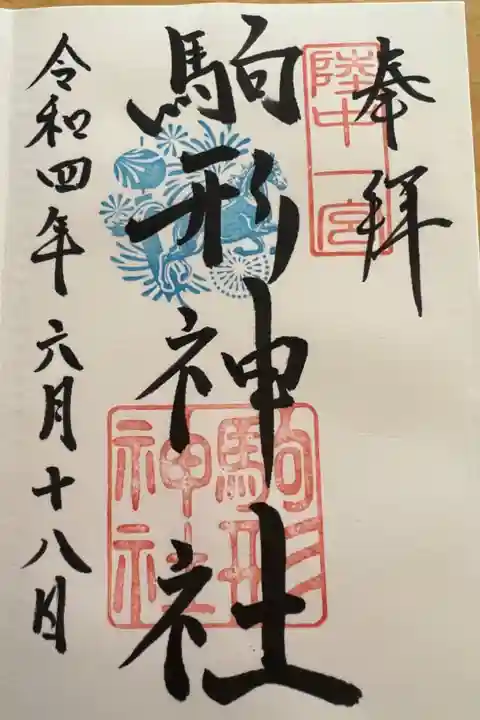 奉拝
陸中一宮
駒形神社
駒形神社
令和四年六月十八日